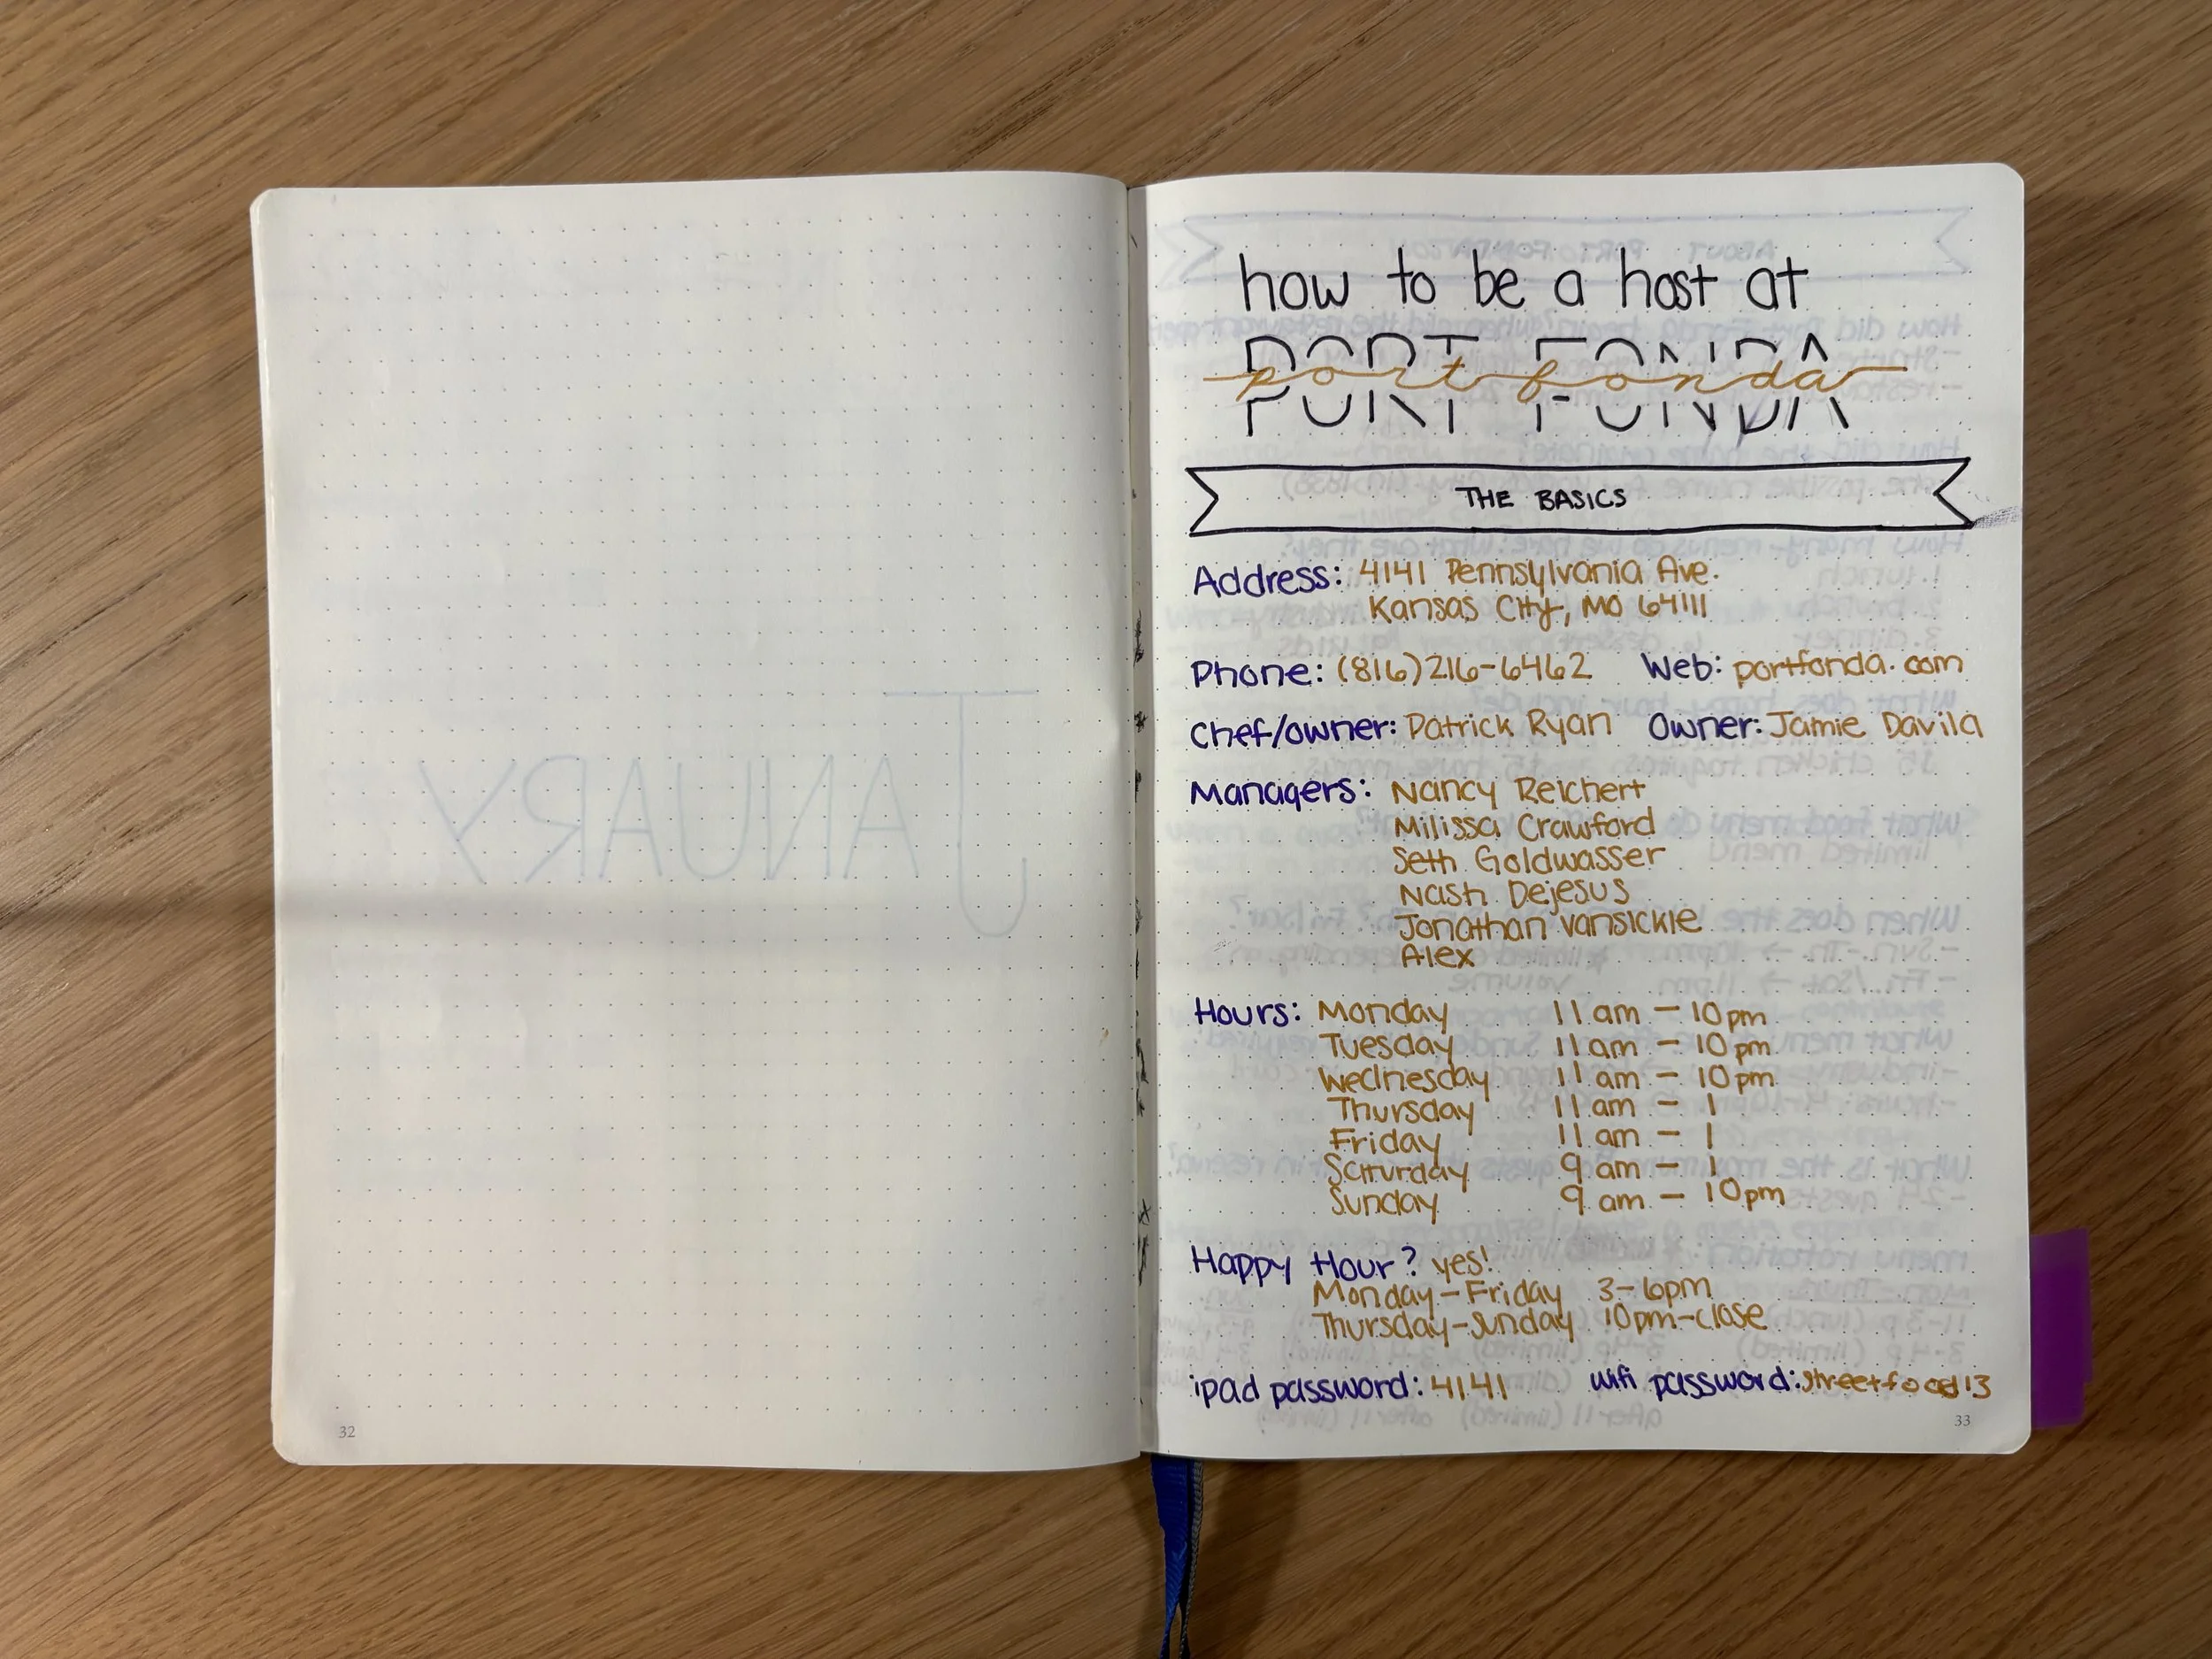 how to be a host at
PORT FONDA
port fonda
THE BASICS
Address: 4141 Pennsylvania Ave.
Kansas City, MO 64111
Phone: (816)216-6462 Web: portfonda.com
Chef/owner: Patrick Ryan Owner: Jamie Davila
Managers: Nancy Reichert
Milissa Crawford
Seth Goldwasser
Nash Dejesus
Jonathan Vansickle
Alex
Hours: Monday 11 am - 10pm
Tuesday 11 am - 10pm
Wednesday 11 am - 10pm
Thursday 11 am - 1
Friday 11 am - 1
Saturday 9 am - 1
Sunday 9 am - 10pm
Happy Hour? yes!
Monday-Friday 3-6pm
Thursday-Sunday 10pm-close
ipad password: 4141 wifi password: streetfood13
32
33
JANUARY